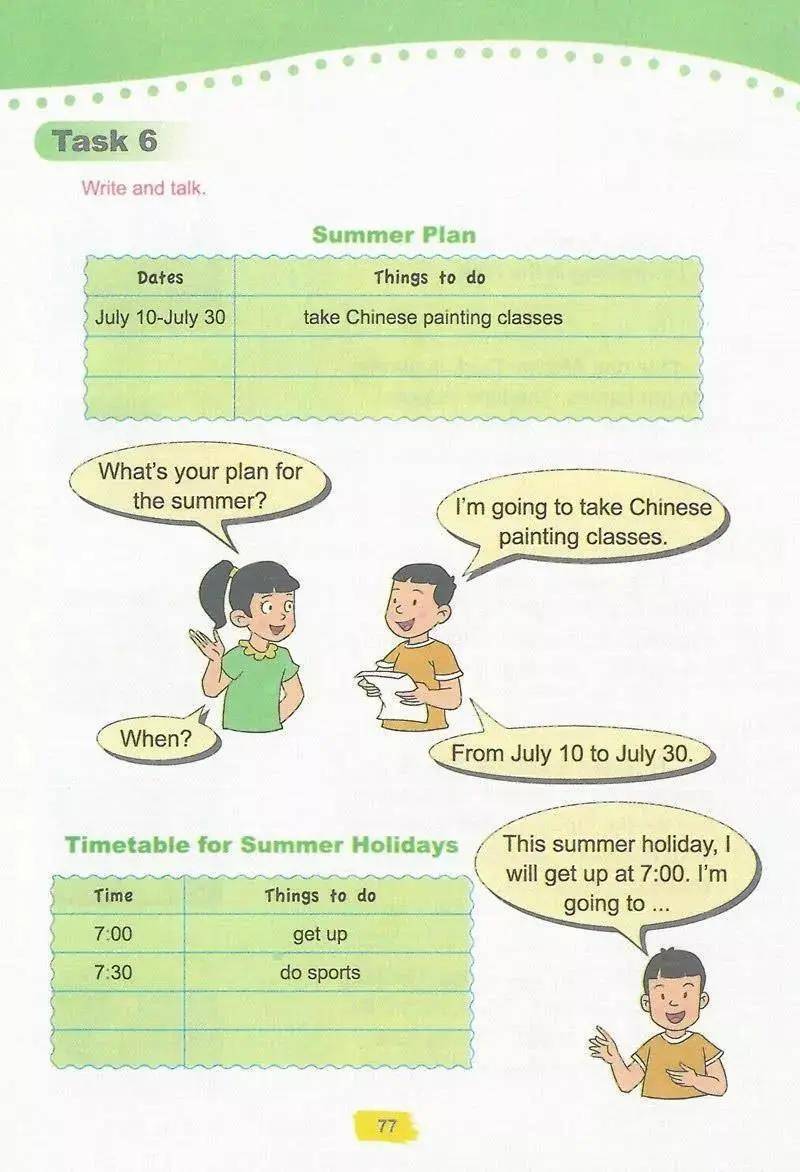 Task 6
Write and talk.
Summer Plan
Dates Things to do
July 10-July 30 take Chinese painting classes
What's your plan for
the summer?
I'm going to take Chinese
painting classes.
When?
From July 10 to July 30.
Timetable for Summer Holidays
Time Things to do
7:00 get up
7:30 do sports
This summer holiday, I
will get up at 7:00. I'm
going to ...
77